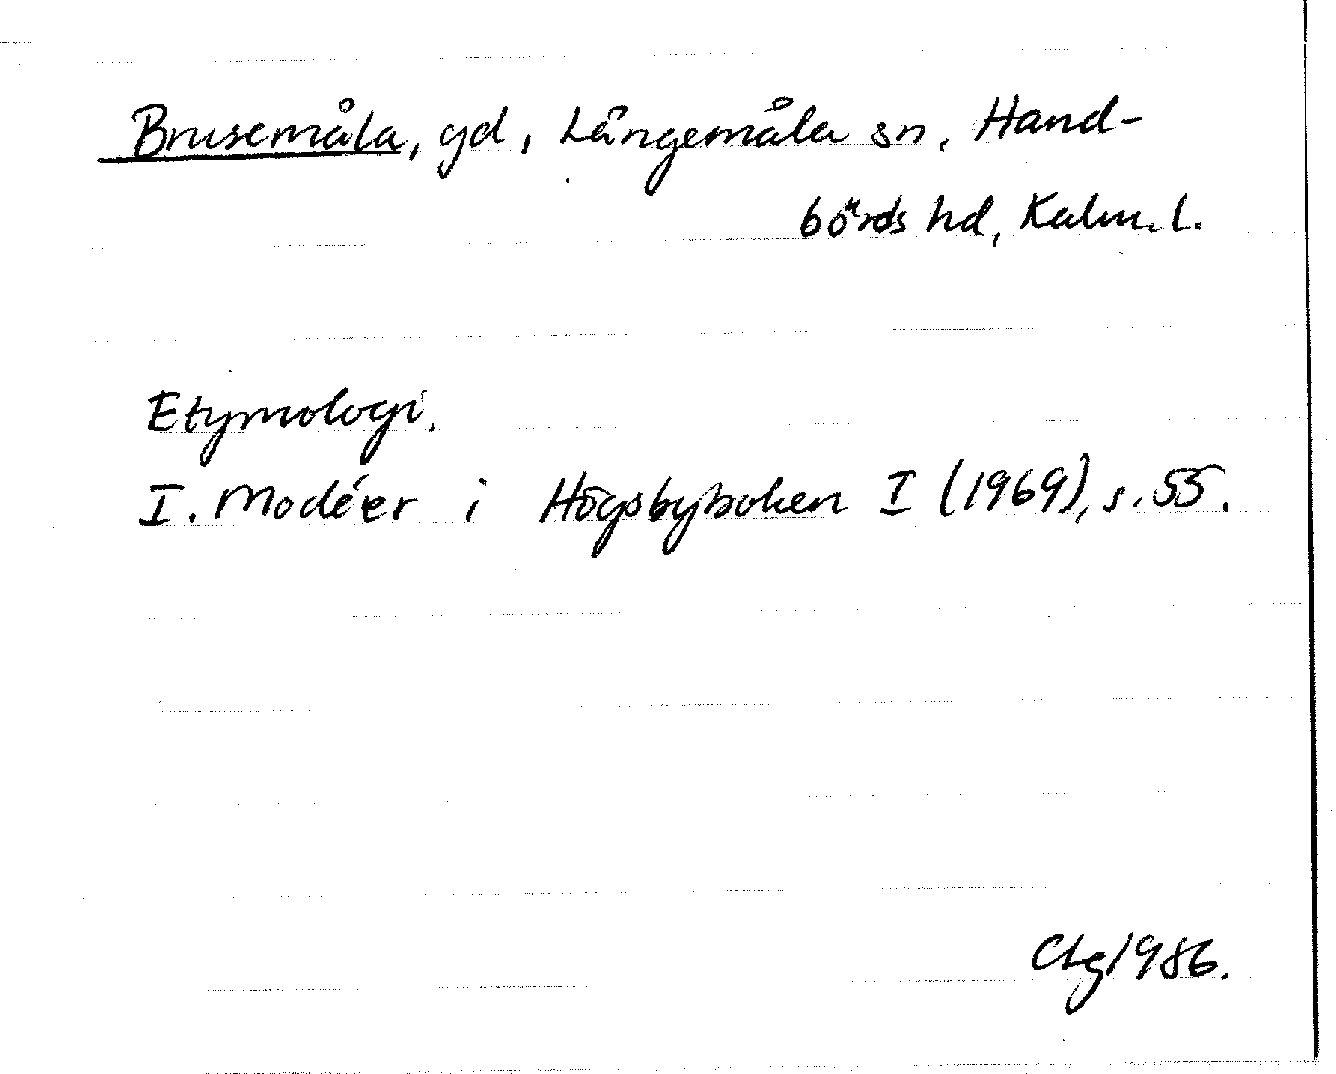 Brusemåla, gd, Långemåla sn, Hand-
börds hd, Kalm. l.
Etymologi.
I. Modéer i Högsbyboken I (1969), s. 55.
CLg 1986.